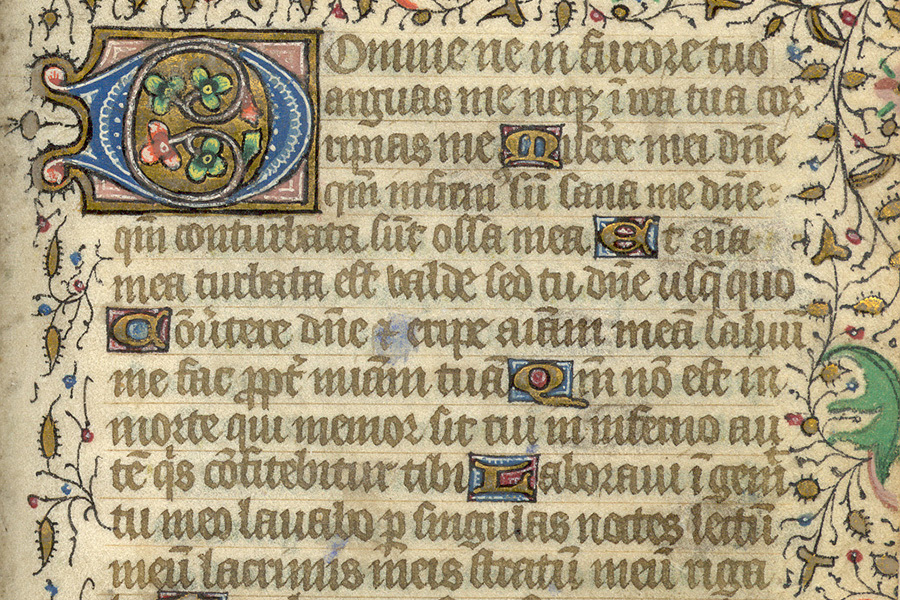 Domine ne in furore tuo
arguas me neqz ĩ ira tua cor
ripias me Miserere mei dñe
qm̃ infirm9 sũ sana me dñe:
qm̃ conturbata sũt ossa mea Et aĩa
mea turbata est valde sed tu dñe usq̃ quo
Cõũtere dñe ⁊ eripe aĩam meã saluũ
me fac ꝓpt̃ miãm tuã Qm̃ nõ est in
morte qui memor sit tui in inferno au
tẽ q̃s cõfitebitur tibi Laboraui ĩ gemi
tu meo lauabo p̱ singulas noctes lectũ
meũ lacrimis meis stratũ meũ riga